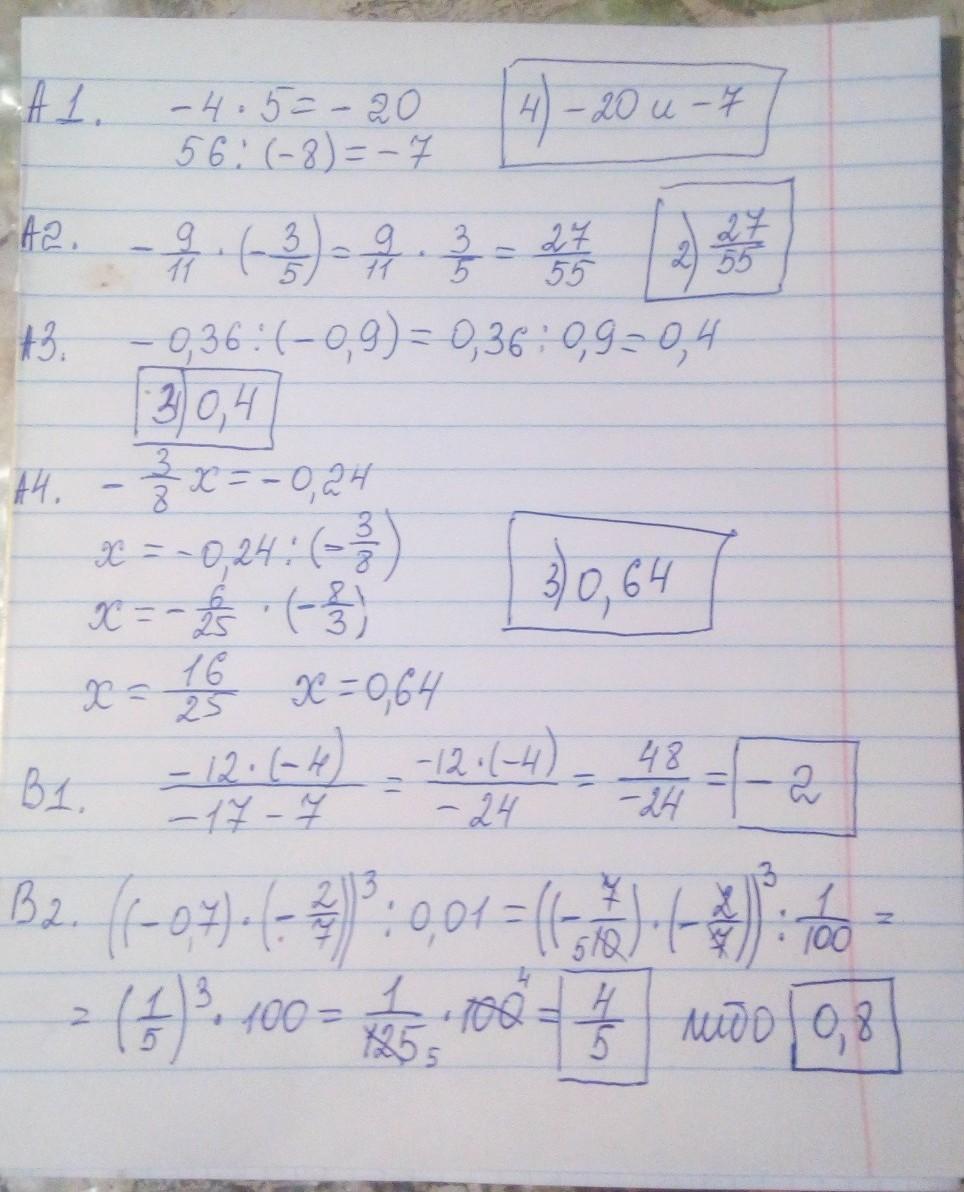 А1. -4 · 5 = -20 4) -20 и -7
56 : (-8) = -7
А2. - 9/11 · (- 3/5) = 9/11 · 3/5 = 27/55 2) 27/55
А3. -0,36 : (-0,9) = 0,36 : 0,9 = 0,4
3) 0,4
А4. - 3/8 x = -0,24
x = -0,24 : (- 3/8)
3) 0,64
x = - 6/25 · (- 8/3)
x = 16/25 x = 0,64
В1. -12 · (-4) / -17 - 7 = -12 · (-4) / -24 = 48/-24 = -2
В2. ((-0,7) · (- 2/7))³ : 0,01 = ((- 7/5 10) · (- 2/7))³ : 1/100 =
= (1/5)³ · 100 = 1/125 5 · 100 4 = 4/5 либо 0,8